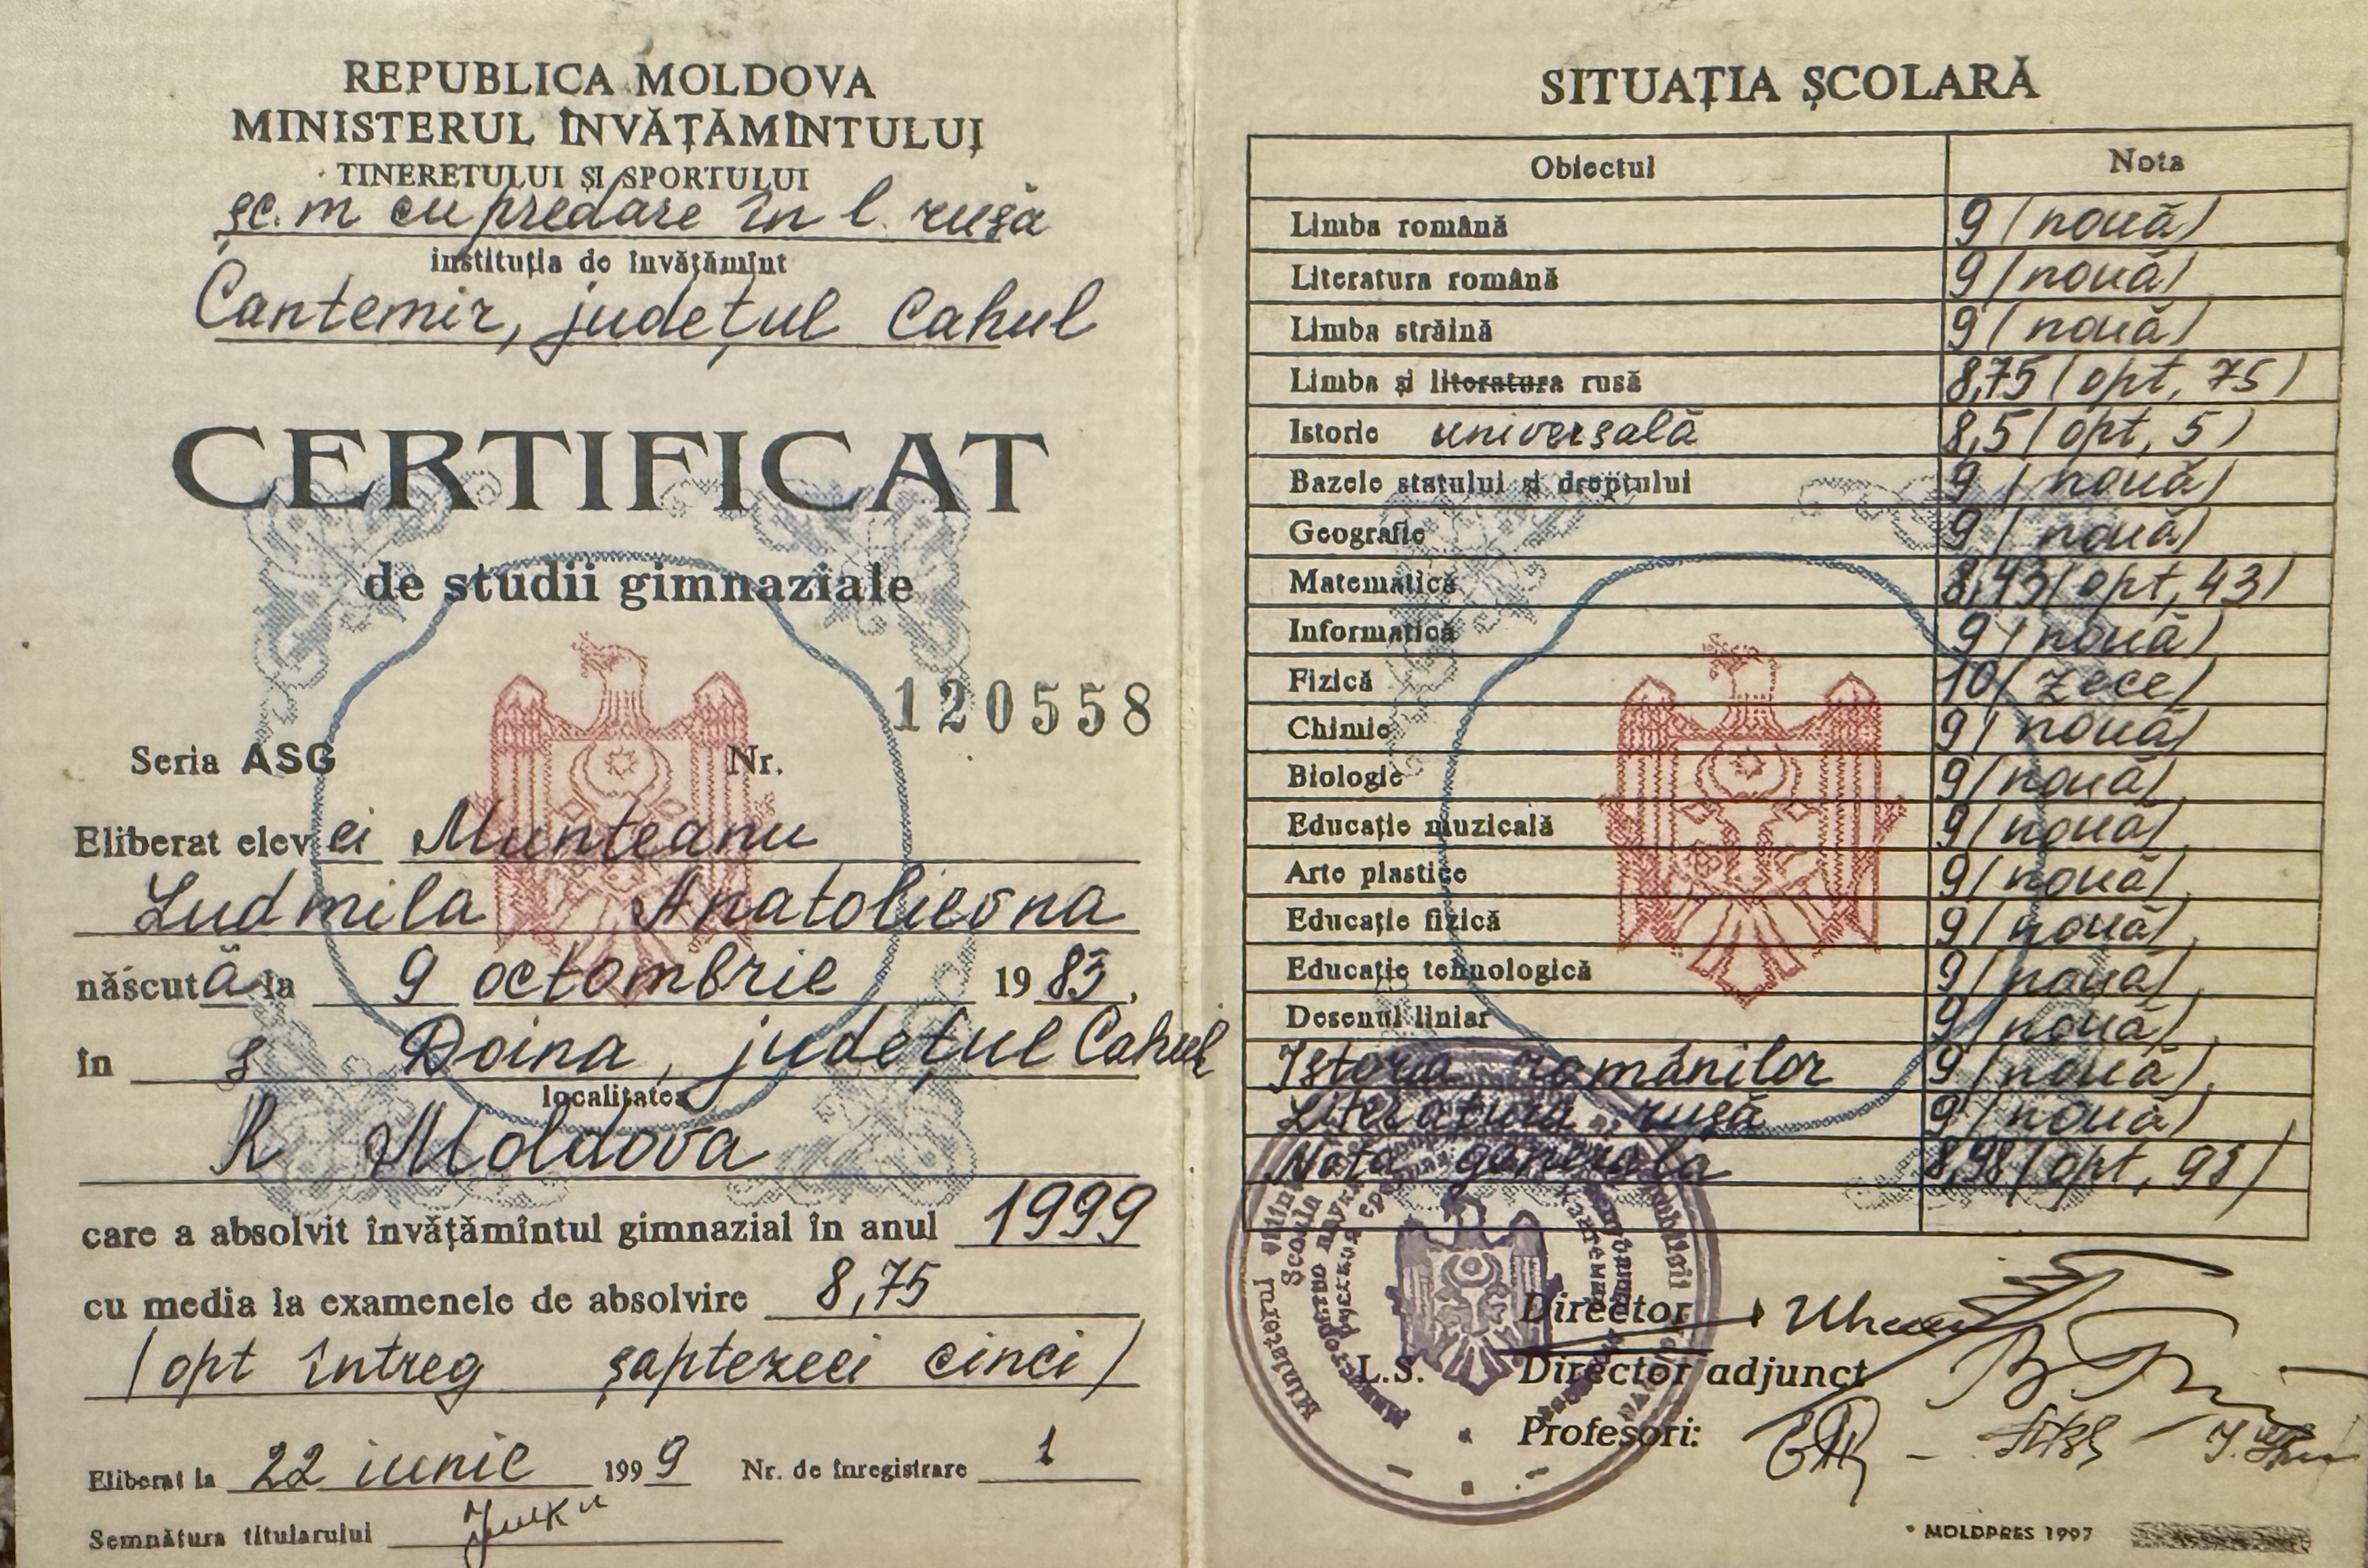 REPUBLICA MOLDOVA
MINISTERUL ÎNVĂȚĂMÎNTULUI
TINERETULUI ȘI SPORTULUI
șc. m cu predare în l. rusă
instituția de învățămînt
Cantemir, județul Cahul
CERTIFICAT
de studii gimnaziale
120558
Seria ASG Nr.
Eliberat elevei Munteanu
Ludmila Anatolievna
născută la 9 octombrie 1983,
în s Doina, județul Cahul
localitatea
R Moldova
care a absolvit învățămîntul gimnazial în anul 1999
cu media la examenele de absolvire 8,75
(opt întreg șaptezeci cinci)
Eliberat la 22 iunie 1999 Nr. de înregistrare 1
Semnătura titularului
SITUAȚIA ȘCOLARĂ
Obiectul Nota
Limba română 9 (nouă)
Literatura română 9 (nouă)
Limba străină 9 (nouă)
Limba și literatura rusă 8,75 (opt, 75)
Istorie universală 8,5 (opt, 5)
Bazele statului și dreptului 9 (nouă)
Geografie 9 (nouă)
Matematică 8,43 (opt, 43)
Informatică 9 (nouă)
Fizică 10 (zece)
Chimie 9 (nouă)
Biologie 9 (nouă)
Educație muzicală 9 (nouă)
Arte plastice 9 (nouă)
Educație fizică 9 (nouă)
Educație tehnologică 9 (nouă)
Desenul liniar 9 (nouă)
Istoria românilor 9 (nouă)
Literatura rusă 9 (nouă)
Nota generala 8,98 (opt, 98)
Director
L.S. Director adjunct
Profesori:
MOLDPRES 1997